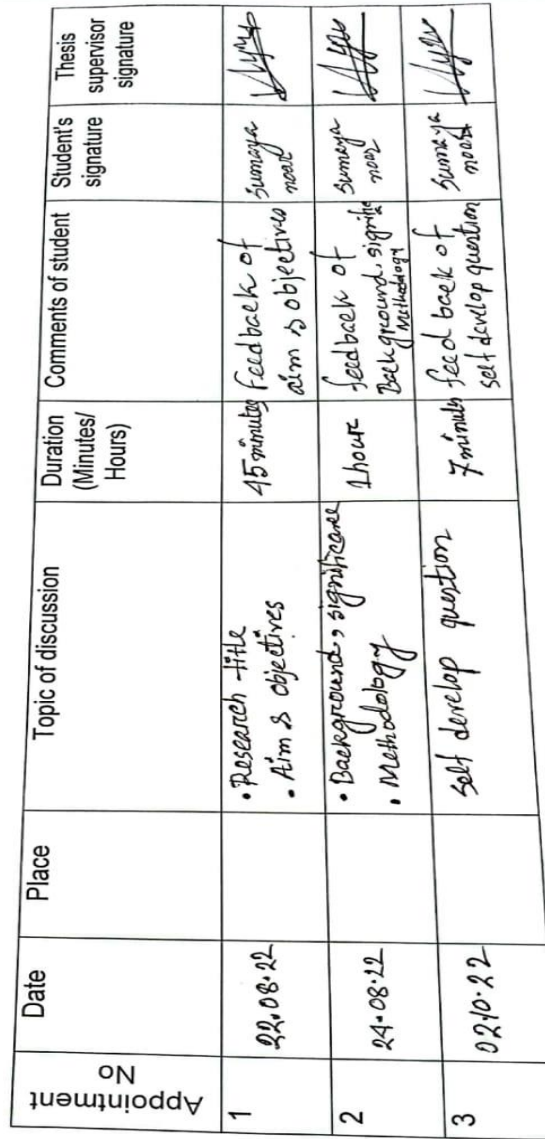 Appointment
No
Date
Place
Topic of discussion
Duration
(Minutes/
Hours)
Comments of student
Student's
signature
Thesis
supervisor
signature
1
22.08.22
• Research title
• Aim & objectives
45 minutes
Feedback of
aim & objectives
Sumaya
noor
2
24.08.22
• Background, significane
• Methodology
1 hour
feedback of
Background, signific
Methodology
Sumaya
noor
3
0210.22
Self develop question
7 minuts
feed back of
self develop question
Sumaya
noor